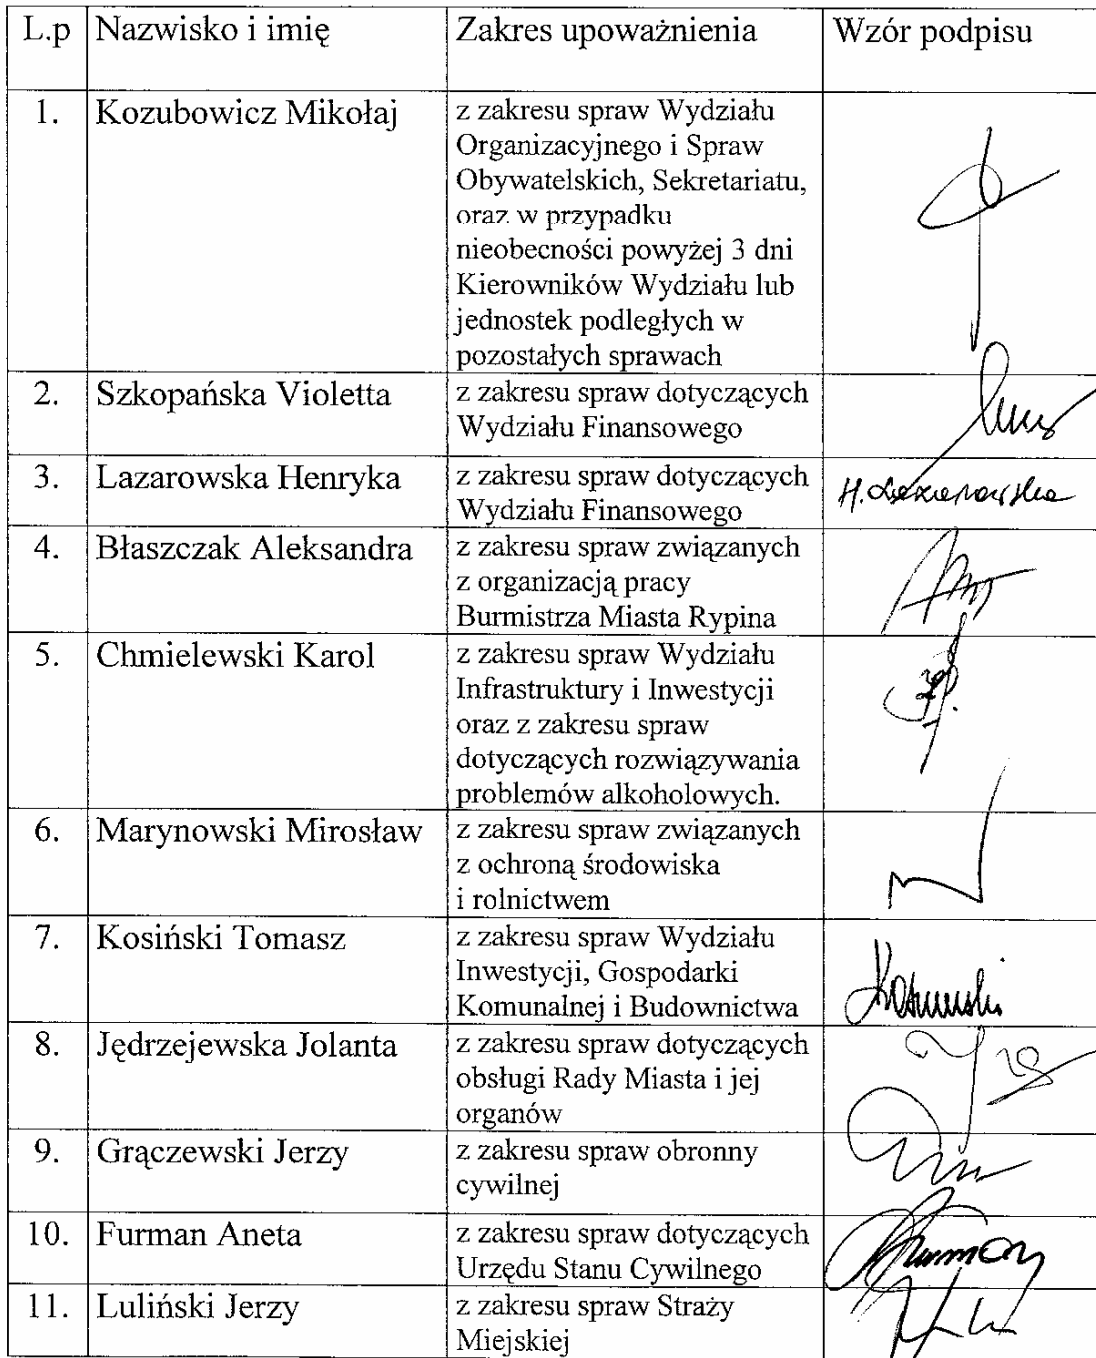 L.p Nazwisko i imię Zakres upoważnienia Wzór podpisu
1. Kozubowicz Mikołaj z zakresu spraw Wydziału
Organizacyjnego i Spraw
Obywatelskich, Sekretariatu,
oraz w przypadku
nieobecności powyżej 3 dni
Kierowników Wydziału lub
jednostek podległych w
pozostałych sprawach
2. Szkopańska Violetta z zakresu spraw dotyczących
Wydziału Finansowego
3. Lazarowska Henryka z zakresu spraw dotyczących H. Lazarowska
Wydziału Finansowego
4. Błaszczak Aleksandra z zakresu spraw związanych
z organizacją pracy
Burmistrza Miasta Rypina
5. Chmielewski Karol z zakresu spraw Wydziału
Infrastruktury i Inwestycji
oraz z zakresu spraw
dotyczących rozwiązywania
problemów alkoholowych.
6. Marynowski Mirosław z zakresu spraw związanych
z ochroną środowiska
i rolnictwem
7. Kosiński Tomasz z zakresu spraw Wydziału
Inwestycji, Gospodarki
Komunalnej i Budownictwa
8. Jędrzejewska Jolanta z zakresu spraw dotyczących
obsługi Rady Miasta i jej
organów
9. Grączewski Jerzy z zakresu spraw obronny
cywilnej
10. Furman Aneta z zakresu spraw dotyczących
Urzędu Stanu Cywilnego
11. Luliński Jerzy z zakresu spraw Straży
Miejskiej